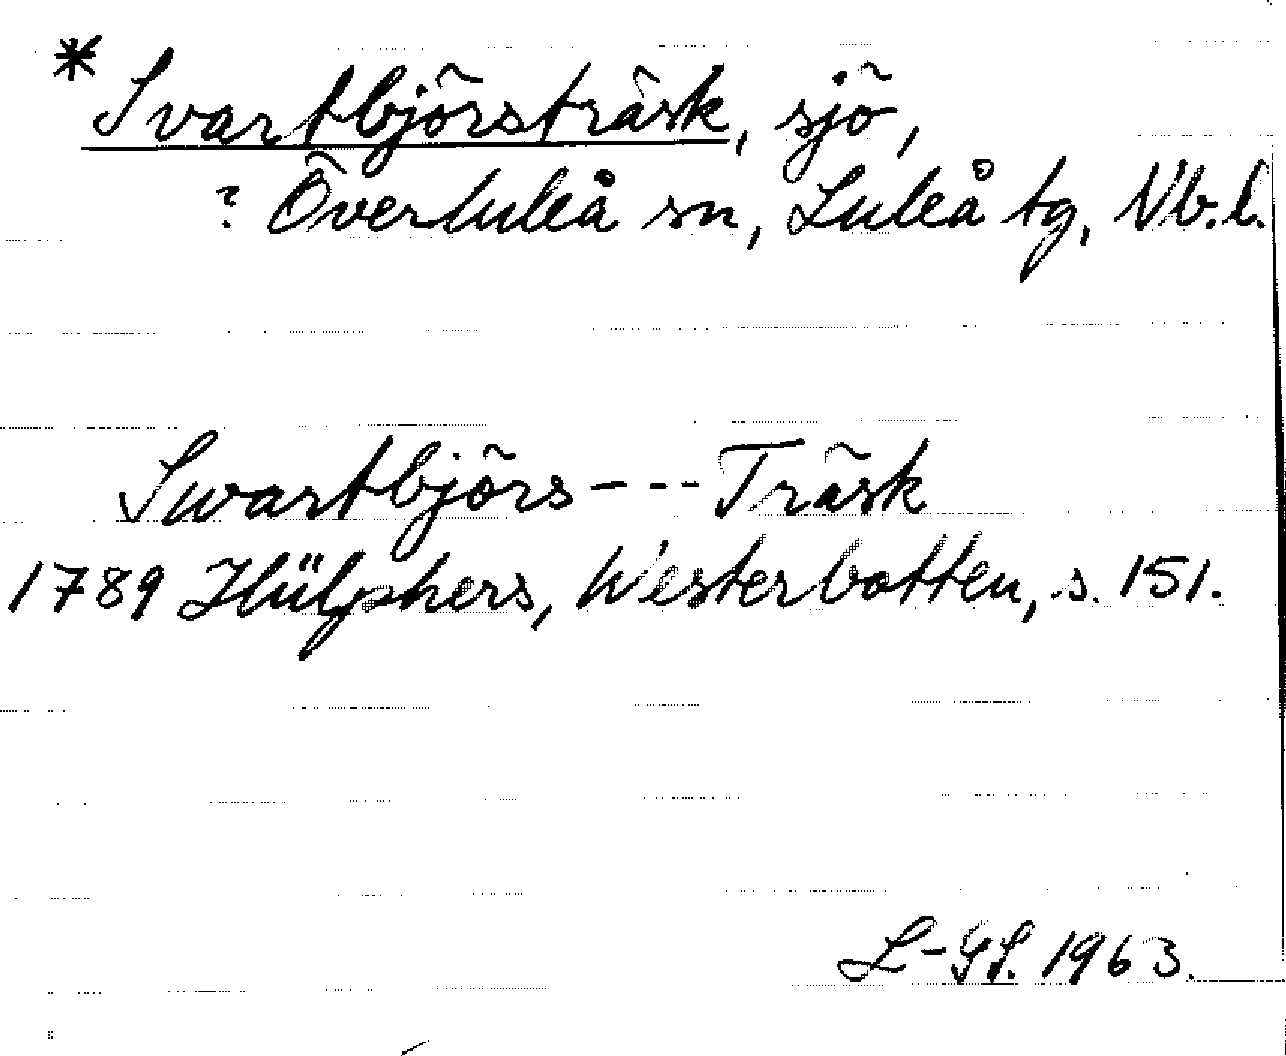 * Svartbjörsträsk, sjö,
? Överluleå sn, Luleå tg, Nb. l.
Swartbjörs --- Träsk
1789 Hülphers, Westerbotten, s. 151.
L-GS. 1963.